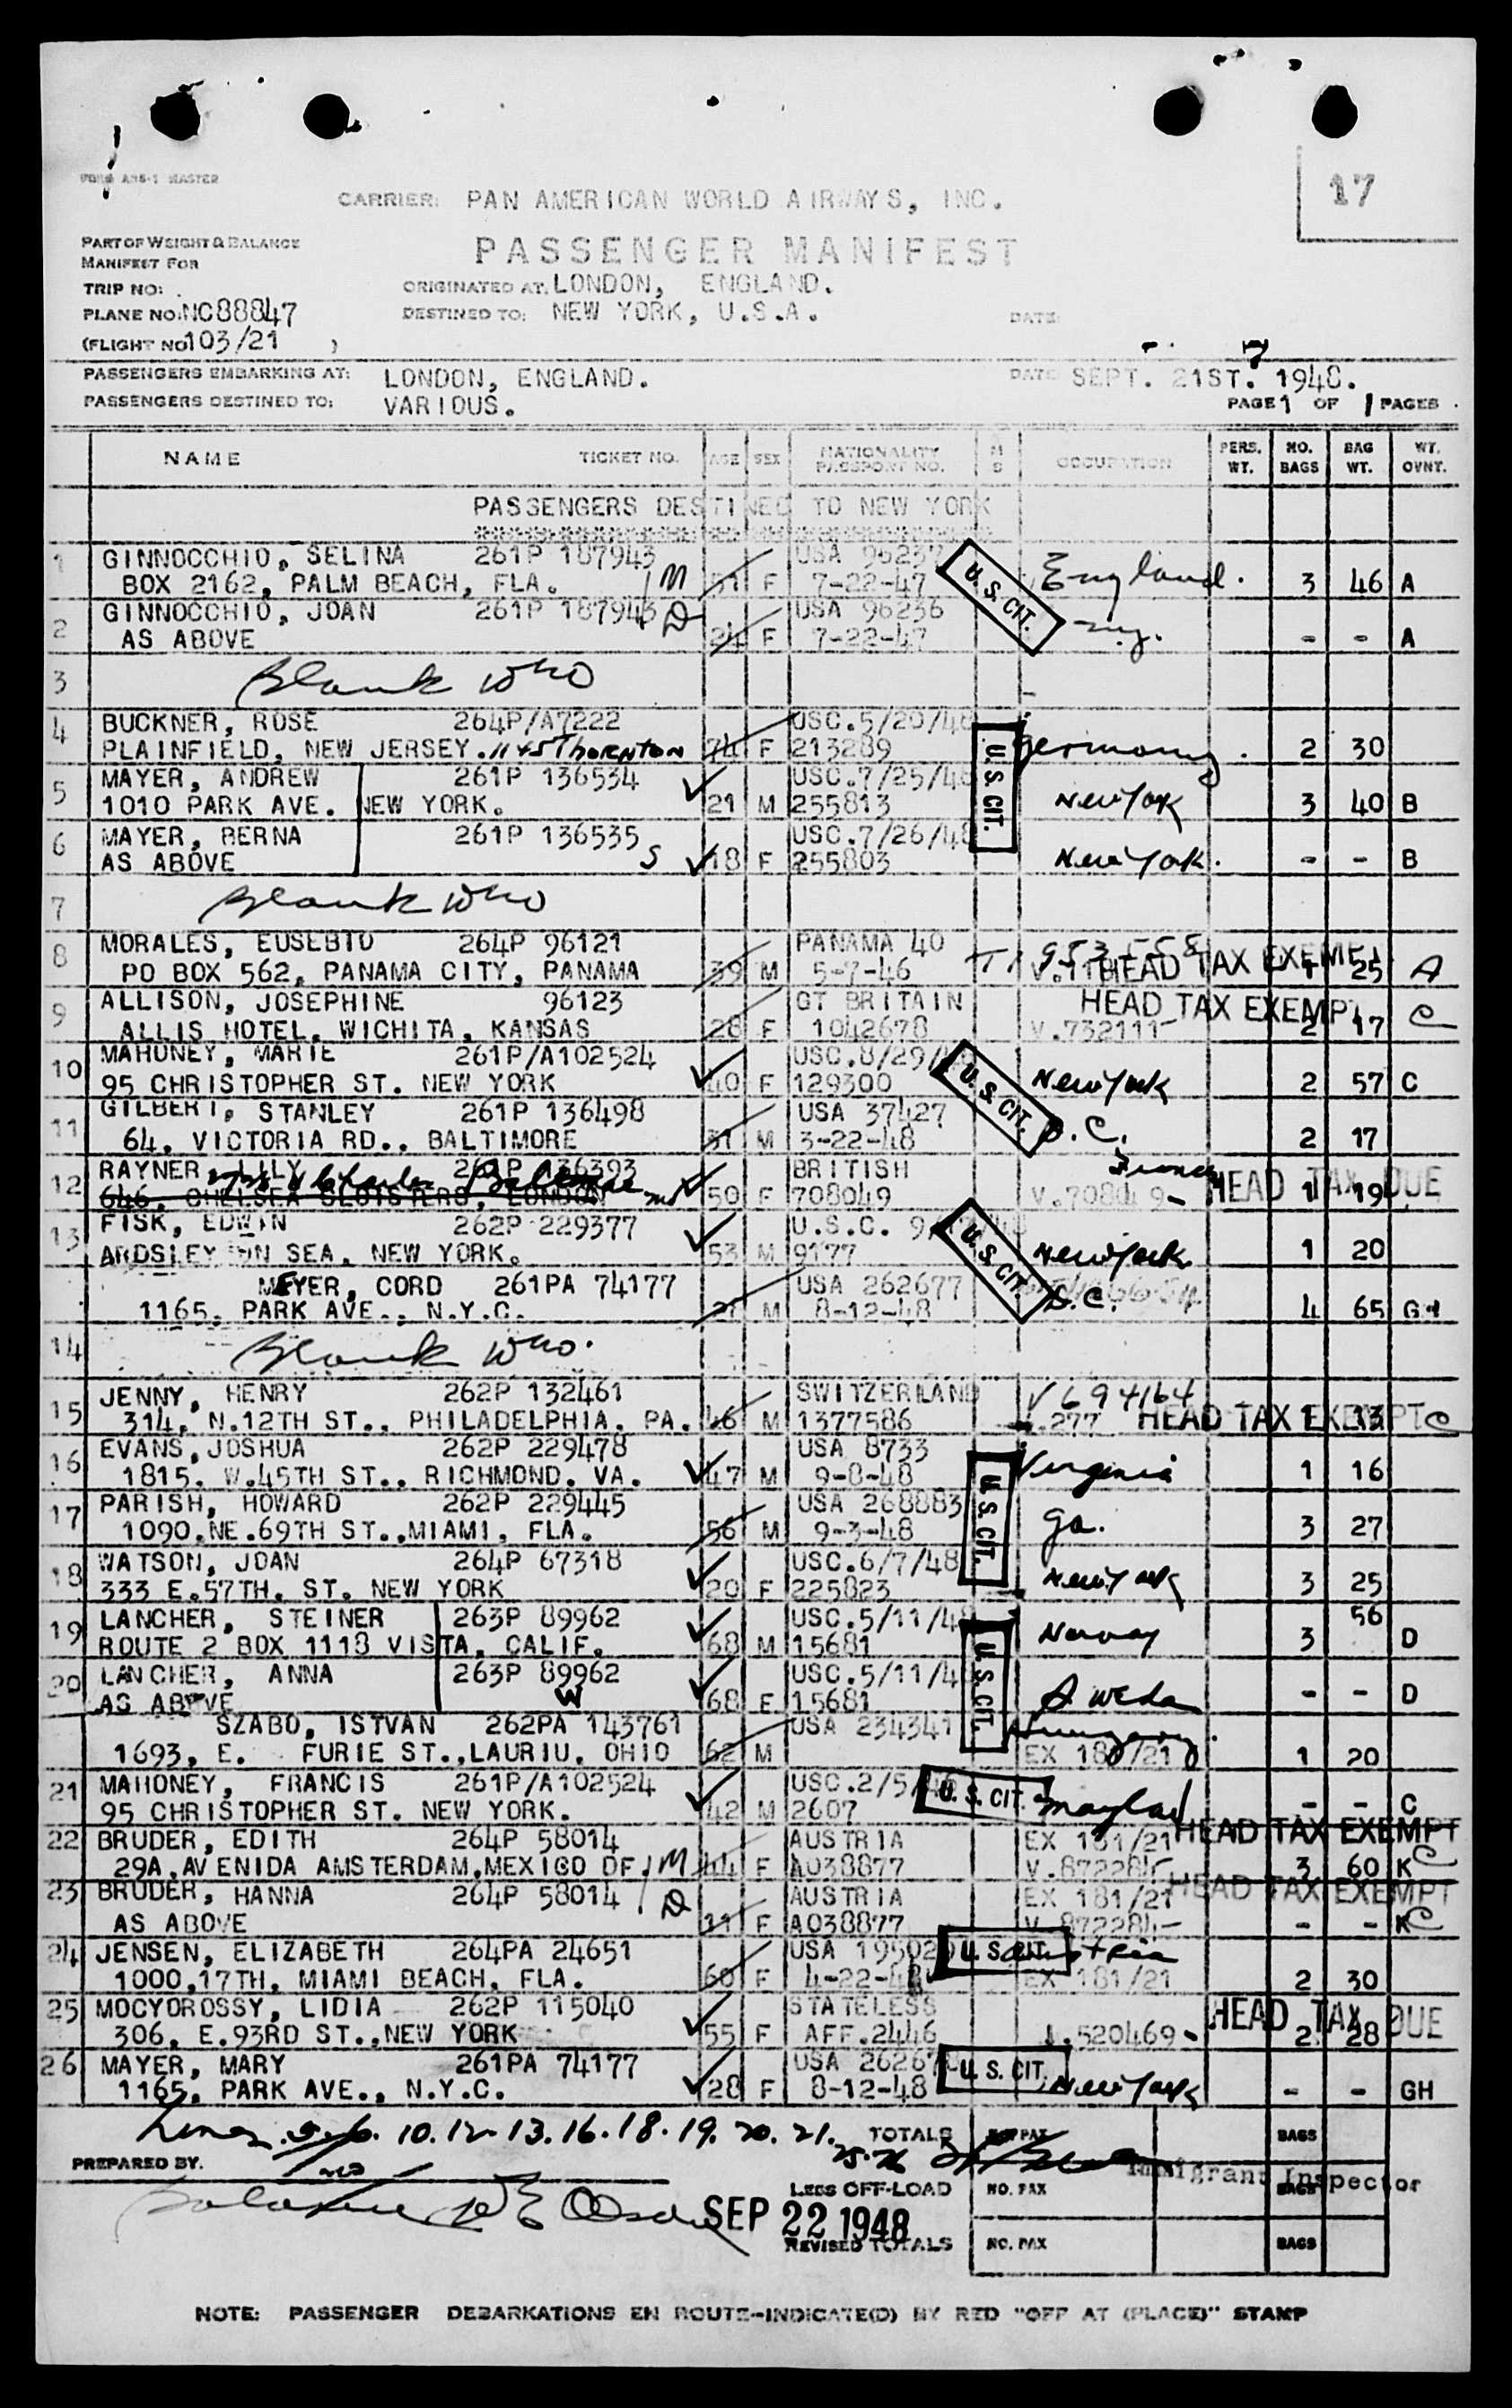 FORM ANS-1 MASTER
17
CARRIER: PAN AMERICAN WORLD AIRWAYS, INC.
PART OF WEIGHT & BALANCE
MANIFEST FOR
PASSENGER MANIFEST
TRIP NO:
ORIGINATED AT: LONDON, ENGLAND.
PLANE NO: NC88847
DESTINED TO: NEW YORK, U.S.A.
DATE:
(FLIGHT NO 103/21 )
PASSENGERS EMBARKING AT: LONDON, ENGLAND.
DATE SEPT. 21ST. 1948.
PASSENGERS DESTINED TO: VARIOUS.
PAGE 1 OF 1 PAGES
NAME TICKET NO. AGE SEX NATIONALITY PASSPORT NO. M S OCCUPATION PERS. WT. NO. BAGS BAG WT. WT. OVNT.
PASSENGERS DESTINED TO NEW YORK
1 GINNOCCHIO, SELINA 261P 187943 USA 96237
BOX 2162, PALM BEACH, FLA. M 51 F 7-22-47 U.S. CIT. England. 3 46 A
2 GINNOCCHIO, JOAN 261P 187943 D USA 96236
AS ABOVE 24 F 7-22-47 N.Y. - - A
3 Blank WHO
4 BUCKNER, ROSE 264P/A7222 USC.5/20/48
PLAINFIELD, NEW JERSEY. 1145 THORNTON 74 F 213289 U.S. CIT. Germany. 2 30
5 MAYER, ANDREW 261P 136534 USC.7/25/48
1010 PARK AVE. NEW YORK. 21 M 255813 New York 3 40 B
6 MAYER, BERNA 261P 136535 USC.7/26/48
AS ABOVE S 18 F 255803 New York. - - B
7 Blank WHO
8 MORALES, EUSEBIO 264P 96121 PANAMA 40 T1 953558
PO BOX 562, PANAMA CITY, PANAMA 39 M 5-7-46 HEAD TAX EXEMPT 25 A
9 ALLISON, JOSEPHINE 96123 GT BRITAIN HEAD TAX EXEMPT
ALLIS HOTEL, WICHITA, KANSAS 28 F 1042678 V.732111- 2 17 C
10 MAHONEY, MARIE 261P/A102524 USC.8/29/
95 CHRISTOPHER ST. NEW YORK 40 F 129300 U.S. CIT. New York 2 57 C
11 GILBERT, STANLEY 261P 136498 USA 37427
64, VICTORIA RD., BALTIMORE 31 M 3-22-48 D.C. 2 17
12 RAYNER, LILY 261P 136393 BRITISH France
646, CHELSEA CLOISTERS, LONDON Baltimore Md 50 F 708049 V.708049- HEAD TAX DUE 1 19
13 FISK, EDWIN 262P 229377 U.S.C. 9
ARDSLEY ON SEA, NEW YORK. 53 M 9177 U.S. CIT. New York 1 20
MEYER, CORD 261PA 74177 USA 262677
1165, PARK AVE., N.Y.C. 28 M 8-12-48 D.C. 4 65 GH
14 Blank WHO.
15 JENNY, HENRY 262P 132461 SWITZERLAND V694164
314, N.12TH ST., PHILADELPHIA, PA. 46 M 1377586 .277 HEAD TAX EXEMPT 1 13 C
16 EVANS, JOSHUA 262P 229478 USA 8733
1815, W.45TH ST., RICHMOND, VA. 47 M 9-8-48 U.S. CIT. Virginia 1 16
17 PARISH, HOWARD 262P 229445 USA 268883
1090,NE.69TH ST.,MIAMI, FLA. 56 M 9-3-48 Ga. 3 27
18 WATSON, JOAN 264P 67318 USC.6/7/48
333 E.57TH. ST. NEW YORK 20 F 225823 New York 3 25
19 LANCHER, STEINER 263P 89962 USC.5/11/48 56
ROUTE 2 BOX 1118 VISTA, CALIF. 68 M 15681 U.S. CIT. Norway 3 D
20 LANCHER, ANNA 263P 89962 USC.5/11/4
AS ABOVE W 68 F 15681 Sweden - - D
SZABO, ISTVAN 262PA 143761 USA 234341 Hungary.
1693, E. FURIE ST.,LAURIU, OHIO 62 M EX 180/21 1 20
21 MAHONEY, FRANCIS 261P/A102524 USC.2/5/
95 CHRISTOPHER ST. NEW YORK. 42 M 2607 U.S. CIT. - - C
22 BRUDER, EDITH 264P 58014 AUSTRIA EX 181/21 HEAD TAX EXEMPT
29A,AVENIDA AMSTERDAM,MEXICO DF. M 44 F A038877 V.872284- 3 60 K C
23 BRUDER, HANNA 264P 58014 D AUSTRIA EX 181/21 HEAD TAX EXEMPT
AS ABOVE 11 F A038877 V.872284- - - K C
24 JENSEN, ELIZABETH 264PA 24651 USA 195029 U.S. CIT. Austria
1000,17TH, MIAMI BEACH, FLA. 60 F 4-22-48 EX 181/21 2 30
25 MOCYOROSSY, LIDIA 262P 115040 STATELESS HEAD TAX DUE
306, E.93RD ST.,NEW YORK 55 F AFF.2446 .520469- 2 28
26 MAYER, MARY 261PA 74177 USA 26267 U.S. CIT.
1165, PARK AVE., N.Y.C. 28 F 8-12-48 New York - - GH
Lines 5.6. 10. 12. 13. 16. 18. 19. 20. 21. 25. 26
TOTALS NO. PAX BAGS
PREPARED BY.
Immigrant Inspector
LESS OFF-LOAD NO. PAX BAGS
SEP 22 1948
REVISED TOTALS NO. PAX BAGS
NOTE: PASSENGER DEBARKATIONS EN ROUTE-INDICATE(D) BY RED "OFF AT (PLACE)" STAMP